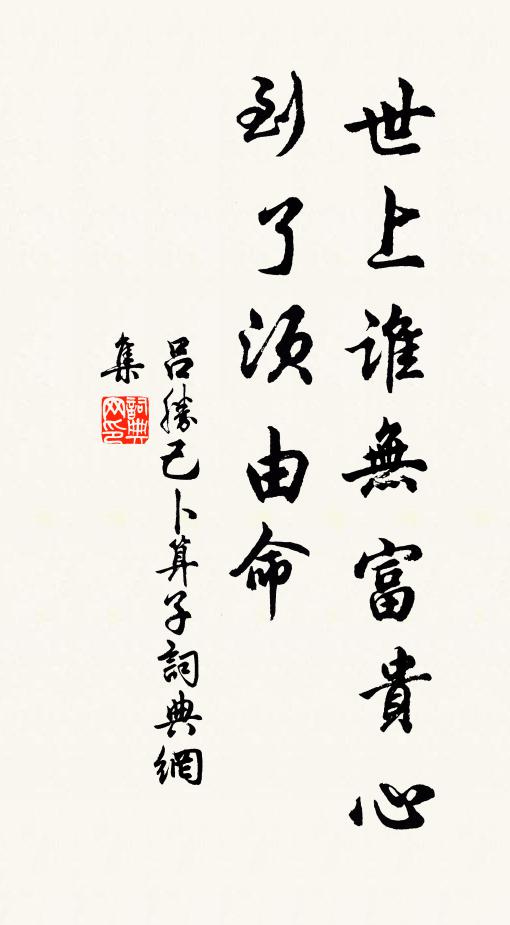 世上誰無富貴心
到了須由命
呂勝己卜算子詞典網
集
詞典網印